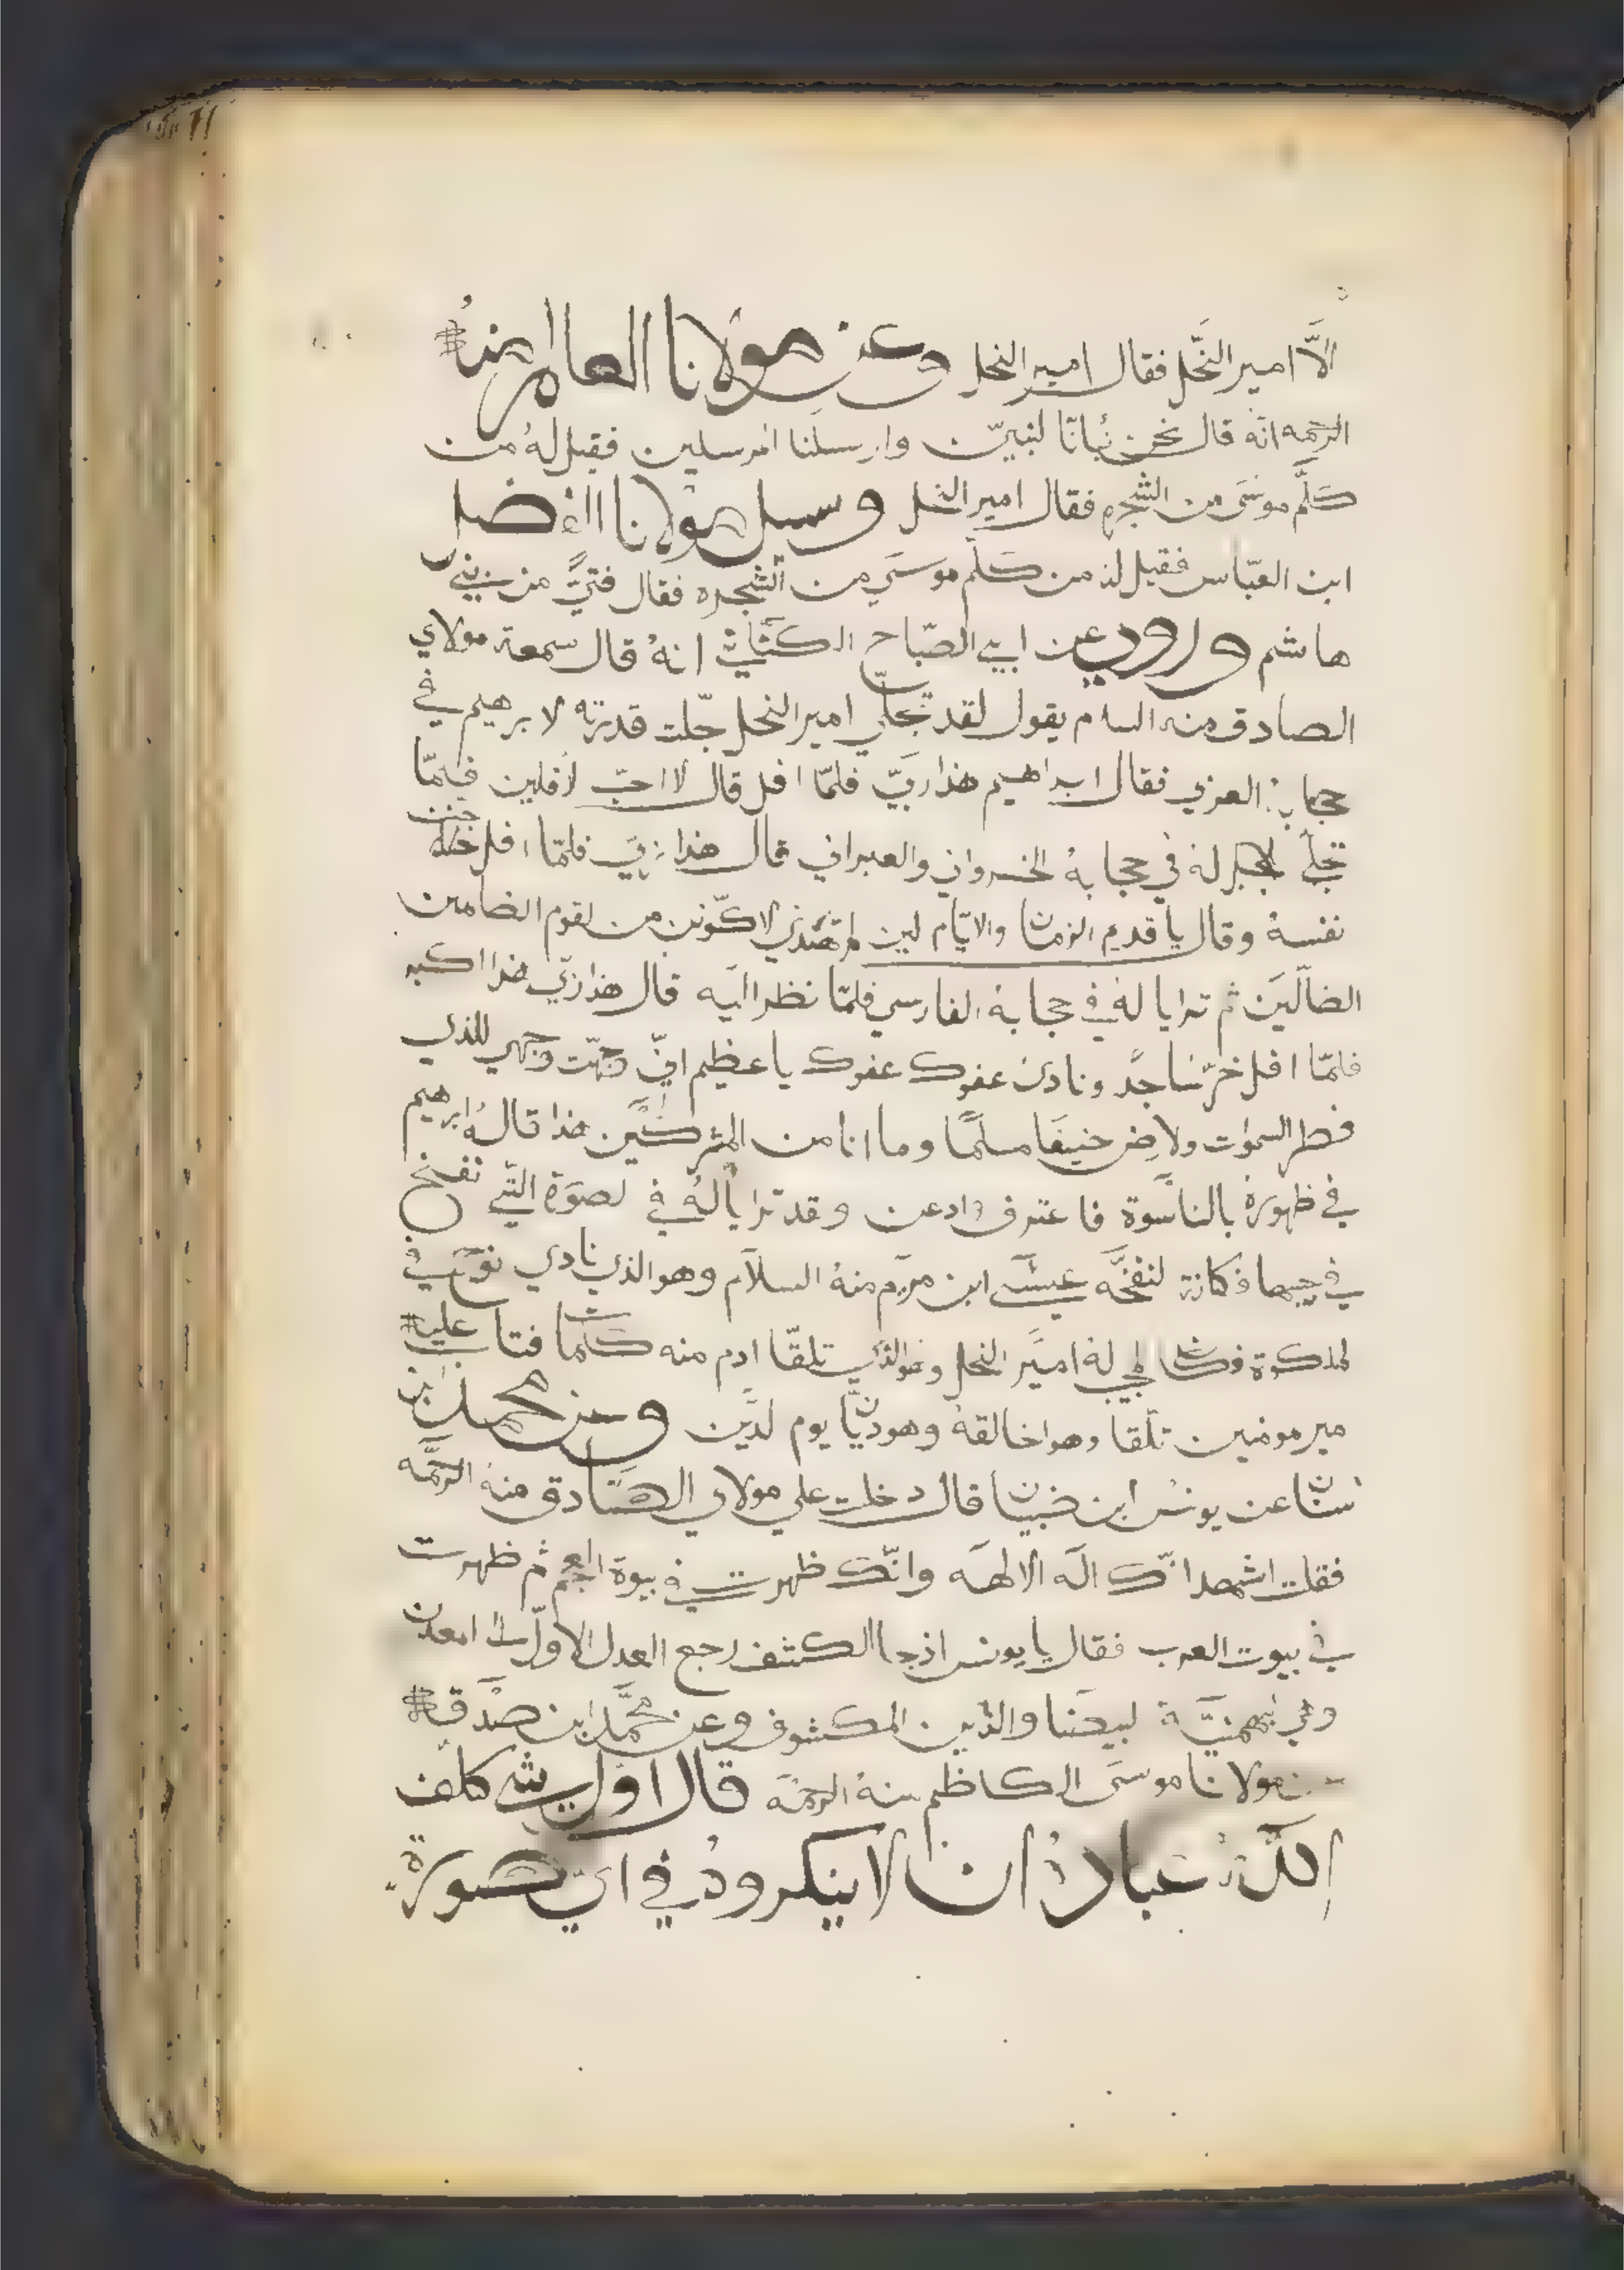 الاَّ امير النحَّل فقال امير النحل وعن مولانا العالم منهُ
الرحمه انهُ قال نحن نُبانّا لنبيّن وارسلنا المرسلين فقيل لهُ من
كلَّم موسَى من الشجره فقال امير النحل وسيل مولانا الفضل
ابن العبّاس فقيل لهُ من كلَّم موسَي من الشجره فقال فتيً من بني
هاشم وروي عن ابي الصّباح الكنَّاني انهُ قال سمعة مولاي
الصادق منه السلام يقول لقد تجلّي امير النحل جّلت قدرته لابرهيم في
حجابهُ العزي فقال ابراهيم هذا ربّي فلمّا افل قال لا احبّ لافلين فلمّا
تجلّي له في حجابهُ الخسرواني والعبراني قال هذا ربّي فلمّا افل
نفسهُ وقال يا قديم الزمان والايّام لين لم تهدني لاكوّنن من لقوم الضامين
الضالّين ثم ترايا لهُ في حجابهُ الفارسي فلمّا نظر اليه قال هذا ربّي هذا اكبر
فلمّا افل خرّ ساجدً ونادىَ عفوك عفوك يا عظيم انّي وجهّت وجهي للذي
فطر السموات ولارض حنيفَا مسلمًا وما انا من المشركين هذا قالهُ ابرهيم
في ظهورهُ بالناسَّوة فاعترف وادعن وقد ترايا لهُ في لصوَرة التّي نفخ
في جيبها فكانة لنفخَّه عيسَى ابن مريَم منهُ السلاَم وهو الذي نادي نوحَ في
لمدكوة فكان لمجيب لهُ اميَر النحل وهو الذي تلقّا ادم منه كلمات فتاب عليه
مير مومنين تلّقا وهوا خالقهُ وهو ديّان يوم لدّين وعن محمد ابن
سنان عن يونسُ ابن ضبيان قال دخلت علي مولاي الصَّادق منهُ الرحمَّه
فقلت اشهد انّك الَه الالهَه وانّك ظهرت في بيوة العجم ثم ظهرت
في بيوت العرب فقال يا يونس اذجا الكشف رجع العدل الاوَل الا امعدن
لبيضَا والدّين المكشوف وعن محمَّد ابن صدَقه
مولانا موسَى الكاظم منهُ الرحمَه قال اوّل شي كلف
اللَّه عبادهُ ان لا ينكروهُ في ايّ صورة